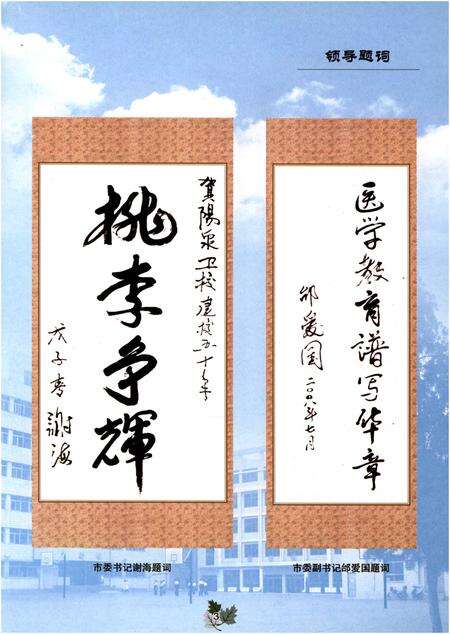 领导题词
医学教育谱写华章
邰爱国
二〇〇八年七月
贺阳泉卫校建校五十年
桃李争輝
戊子春 謝海
市委书记谢海题词
市委副书记邰爱国题词
3